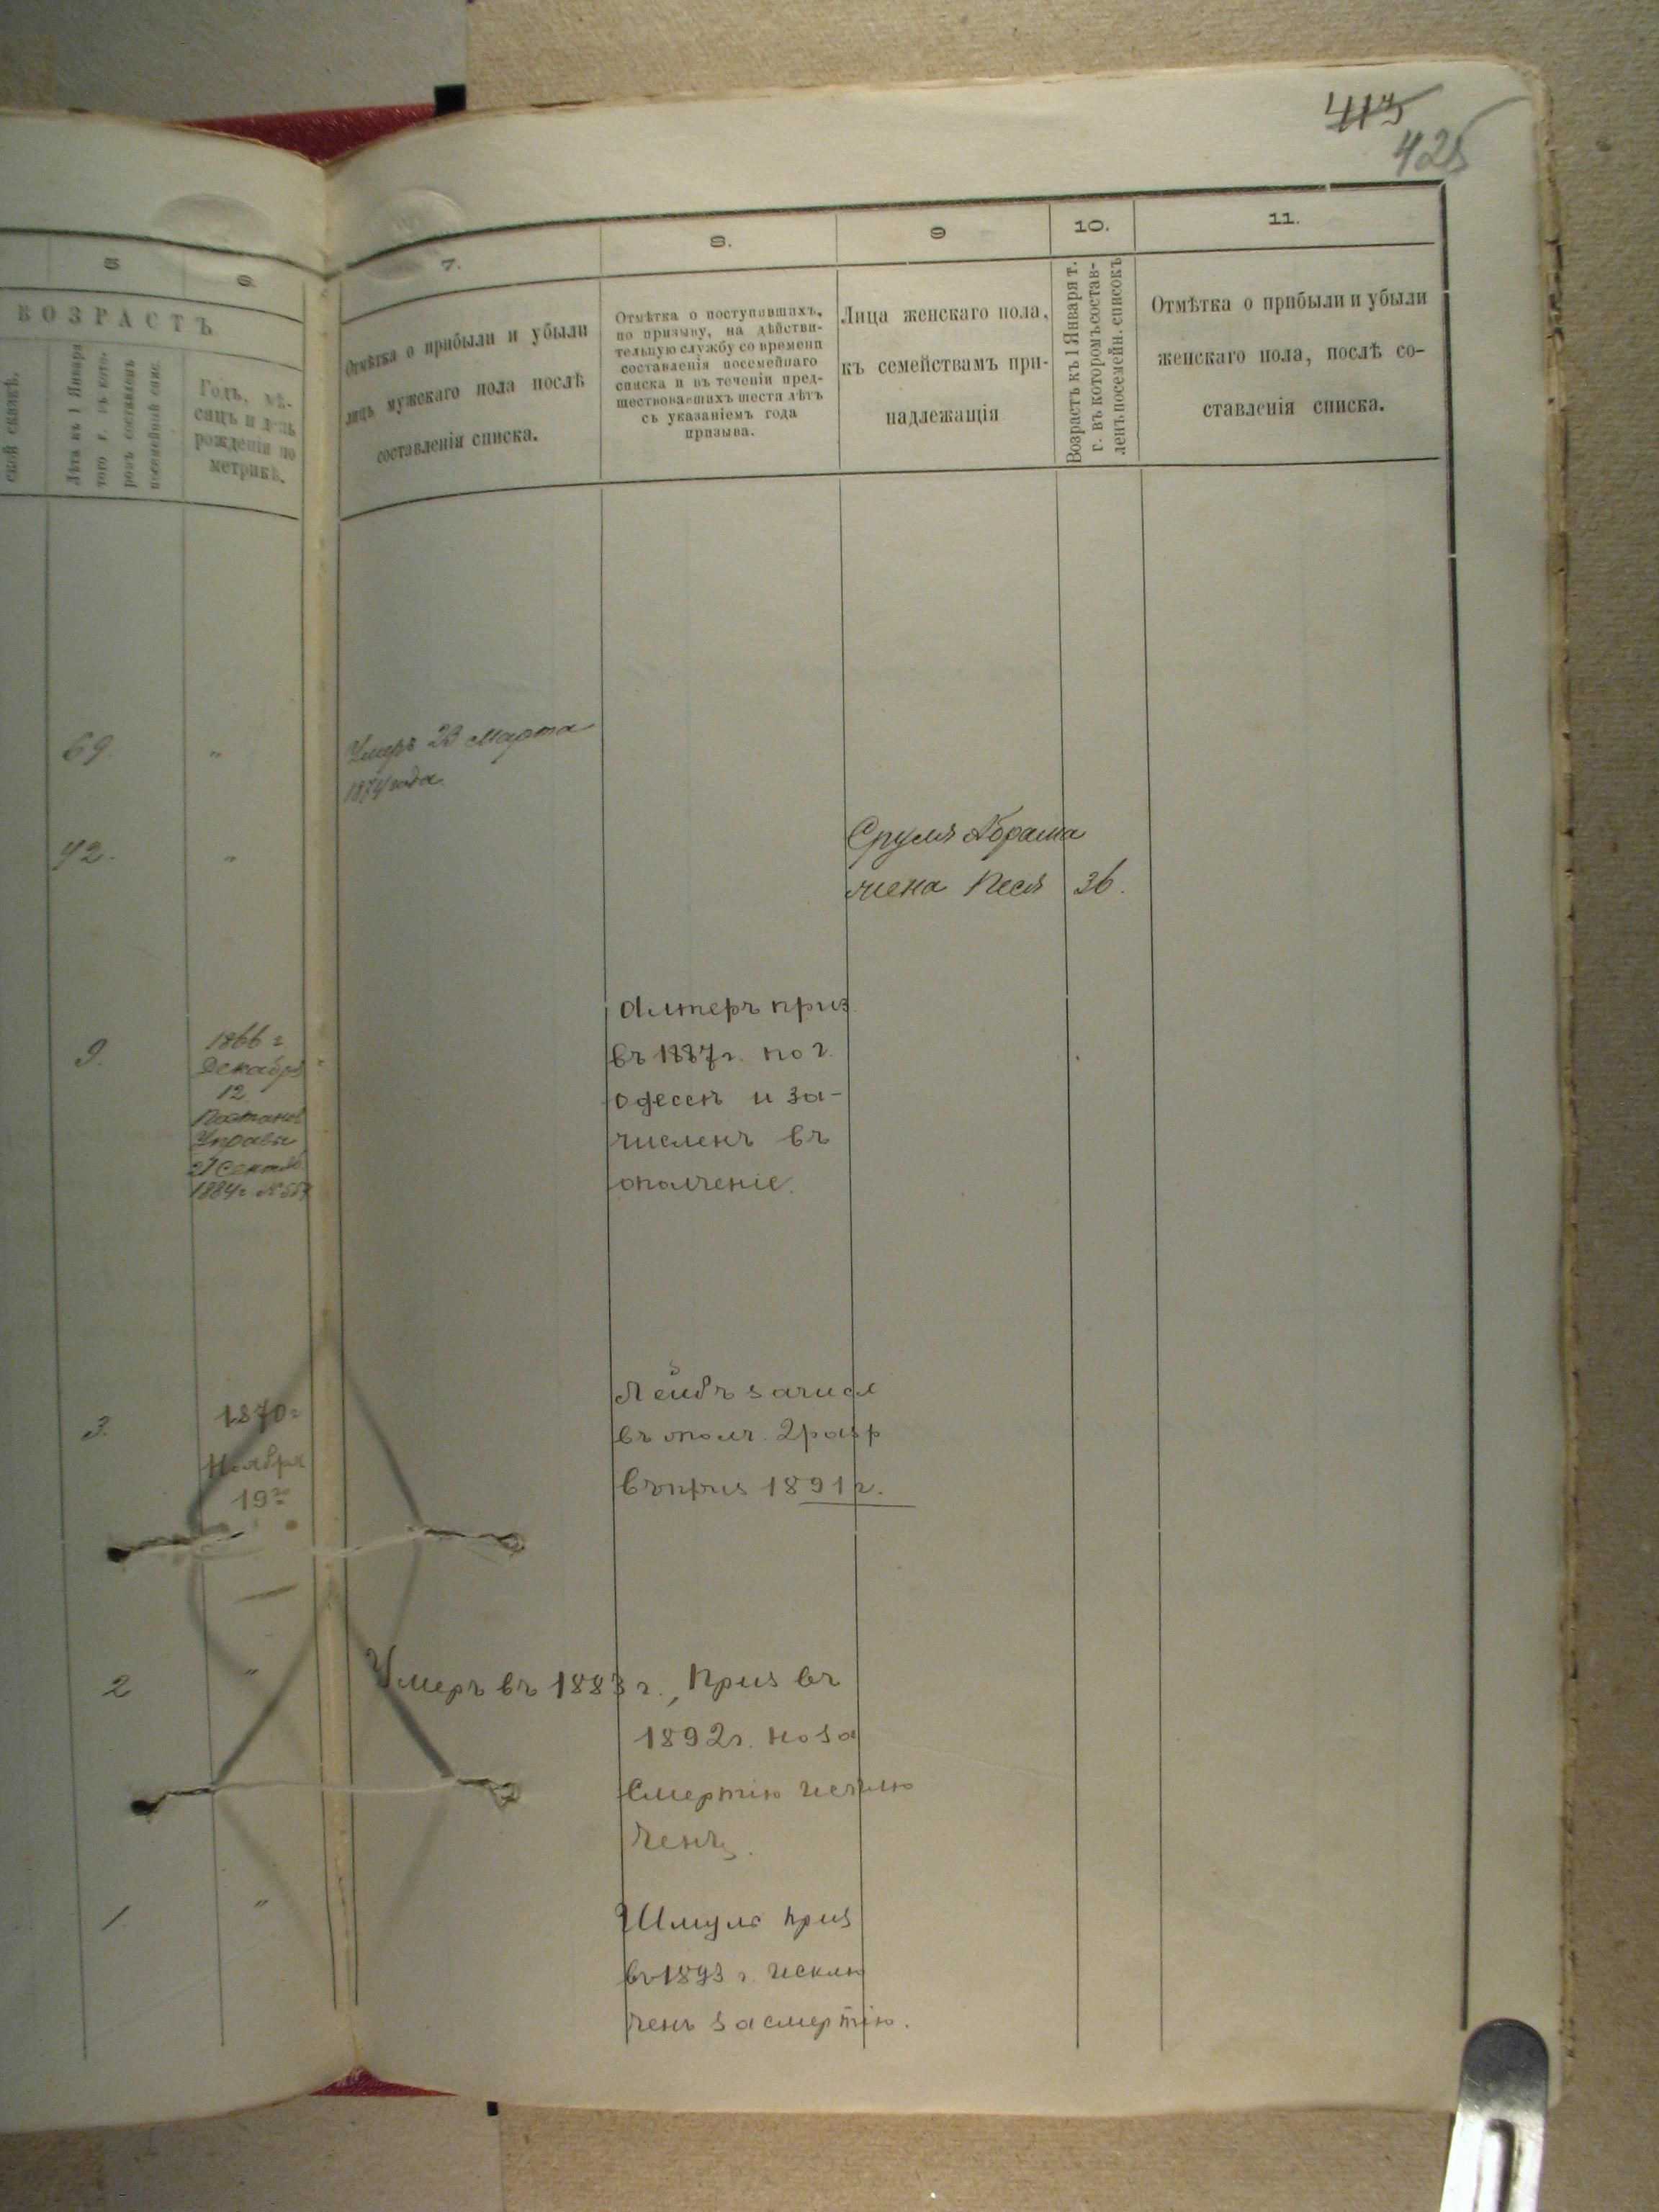 415
425
5
6
7.
8.
9
10.
11.
ВОЗРАСТЪ
ской сказкѣ.
Лѣта къ 1 Января
того г. въ кото-
ромъ составленъ
посемейный спис.
Годъ, мѣ-
сяцъ и день
рожденія по
метрикѣ.
Отмѣтка о прибыли и убыли
лицъ мужскаго пола послѣ
составленія списка.
Отмѣтка о поступившихъ,
по призыву, на дѣйстви-
тельную службу со времени
составленія посемейнаго
списка и въ теченіи пред-
шествовавшихъ шести лѣтъ
съ указаніемъ года
призыва.
Лица женскаго пола,
къ семействамъ при-
надлежащія
Возрастъ къ 1 Января т.
г. въ которомъ состав-
ленъ посемейн. списокъ
Отмѣтка о прибыли и убыли
женскаго пола, послѣ со-
ставленія списка.
69
"
Умеръ 23 Марта
1874 года.
42.
"
Сруля Абрама
жена Песя 36.
9.
1866 г
Декабря
12
Постанов
Управы
21 Сентяб
1884 г №
Алтеръ приз
въ 1887 г. по г.
Одессѣ и за-
численъ въ
ополченіе.
3.
1870 г
Ноября
19го
Лейбъ зачисл
въ ополч. 2 разр
въ приз 1891 г.
2
"
Умеръ въ 1883 г., Приз въ
1892 г. но за
Смертію исклю
ченъ.
1
"
Шмуль приз
въ 1893 г. исклю
ченъ за смертію.